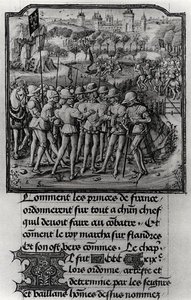 Comment les princes de france
ordonnerent sur tout a chun chief
quil devoit faire au combatre. Et
comment le roy marcha sur flandres
Et son ost bers comines. Le chap.
lors ordonne, arreste et
determine par les seigneurs
vaillans hommes dessus nommez